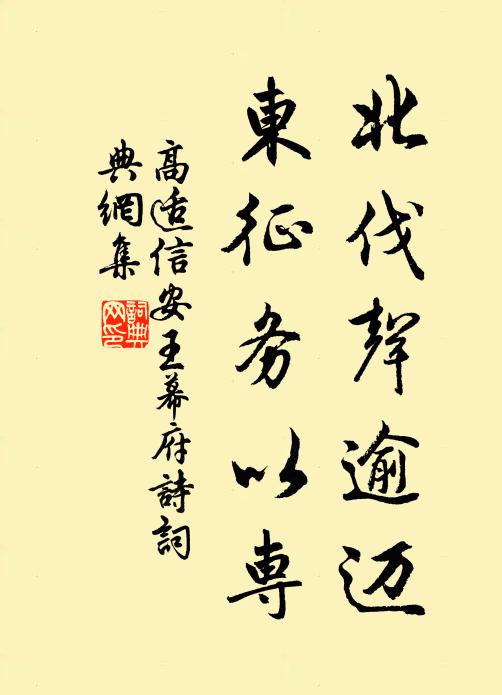 北伐聲逾迈
東征务以専
高适信安王幕府詩詞
典網集
詞典
网印